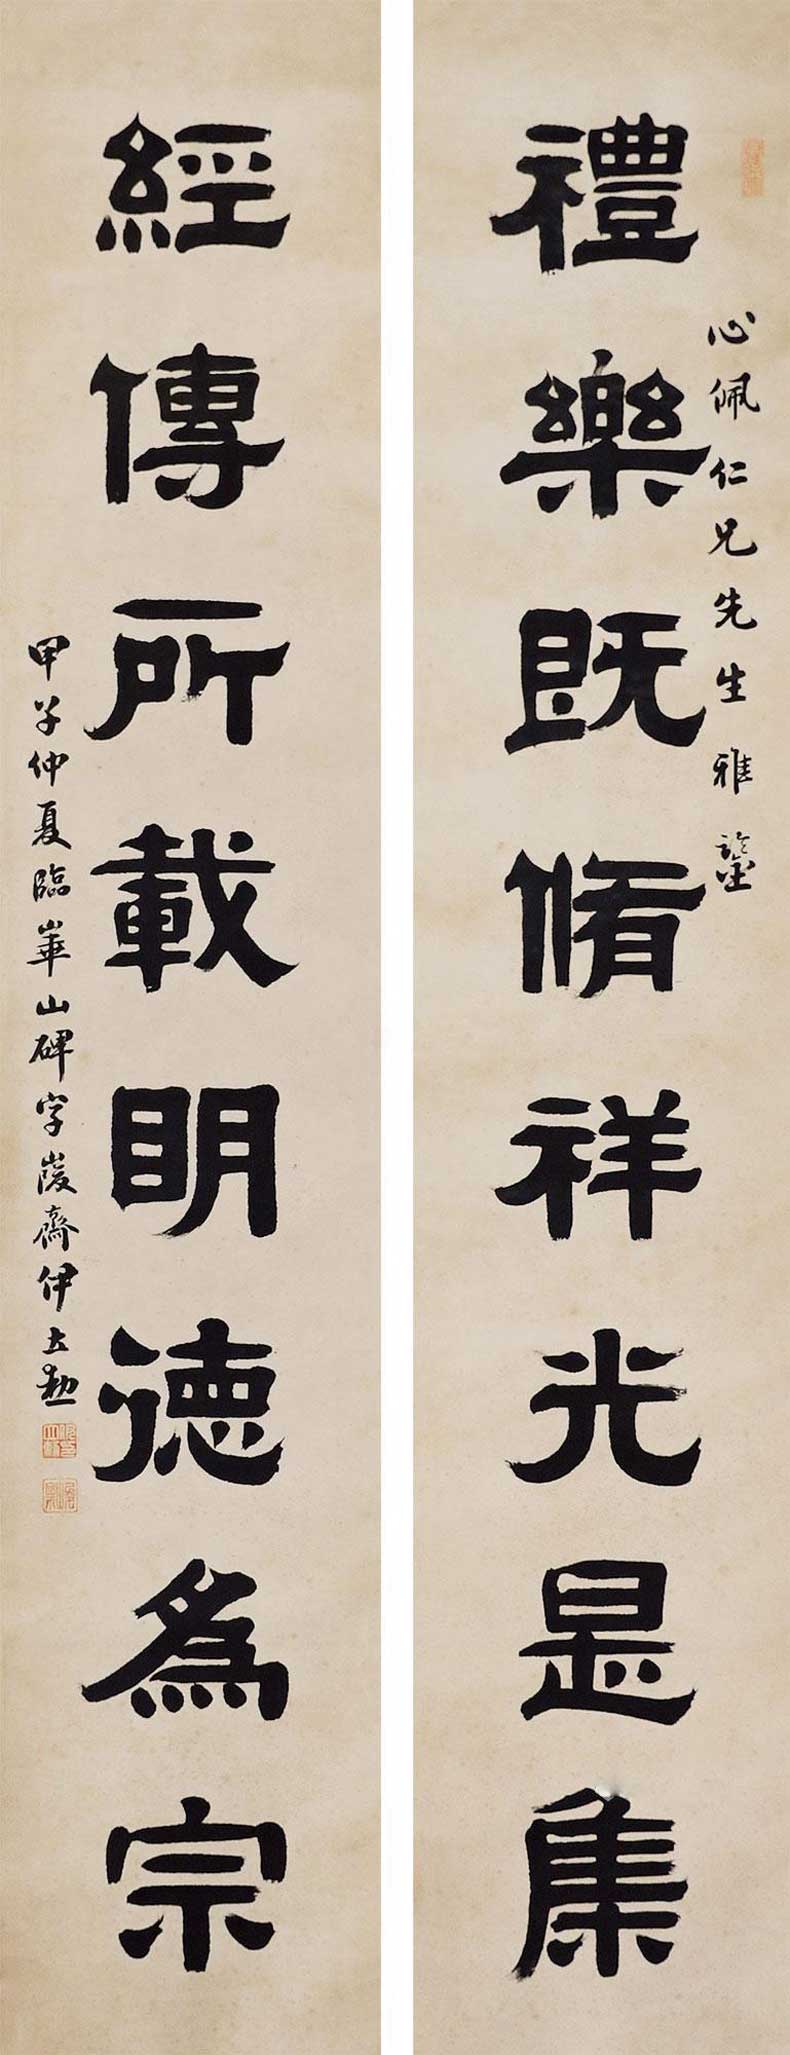 禮樂既脩祥光是集
心佩仁兄先生雅鑒
經傳所載明德為宗
甲子仲夏臨華山碑字峻齋伊立勲